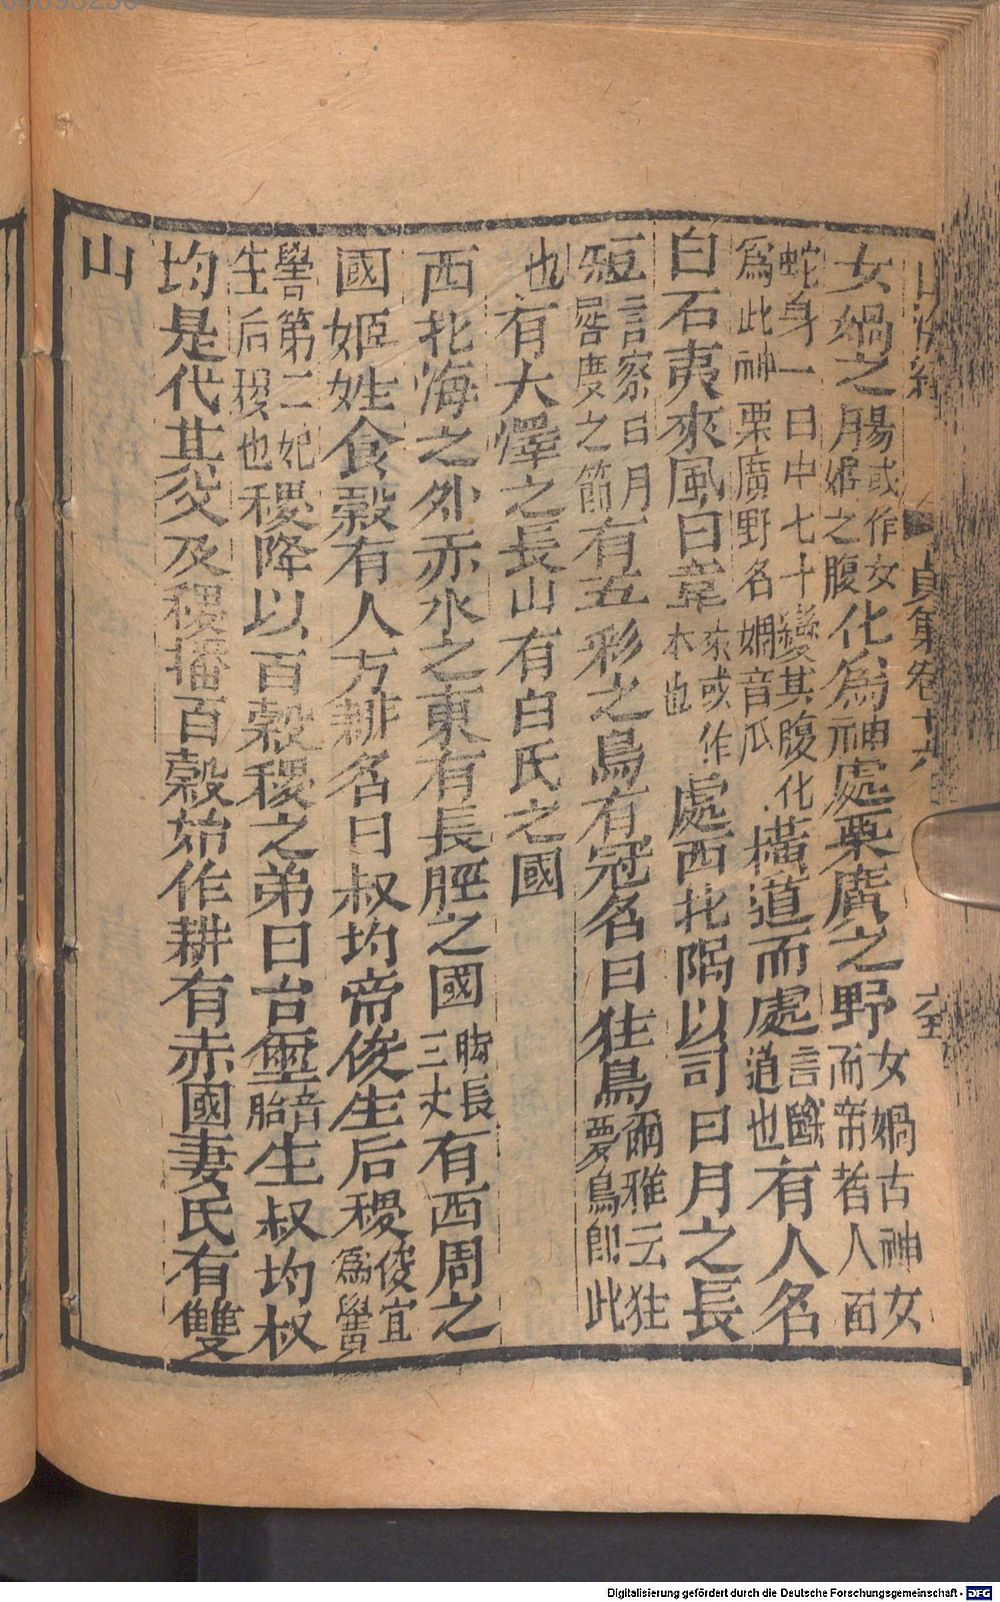 山海經 貞集卷十六 六
女媧之腸或作女媧之腹化為神處栗廣之野女媧古神女而帝者人面
蛇身一日中七十變其腹化為此神栗廣野名媧音瓜橫道而處言斷道也有人名
曰石夷來風曰韋來或作本也處西北隅以司日月之長
短言察日月晷度之節有五彩之鳥有冠名曰狂鳥爾雅云狂夢鳥即此
也有大澤之長山有白氏之國
西北海之外赤水之東有長脛之國脚長三丈有西周之
國姬姓食穀有人方耕名曰叔均帝俊生后稷俊宜為嚳
嚳第二妃生后稷也稷降以百穀稷之弟曰台璽音胎生叔均叔
均是代其父及稷播百穀始作耕有赤國妻氏有雙
山
Digitalisierung gefördert durch die Deutsche Forschungsgemeinschaft - DFG